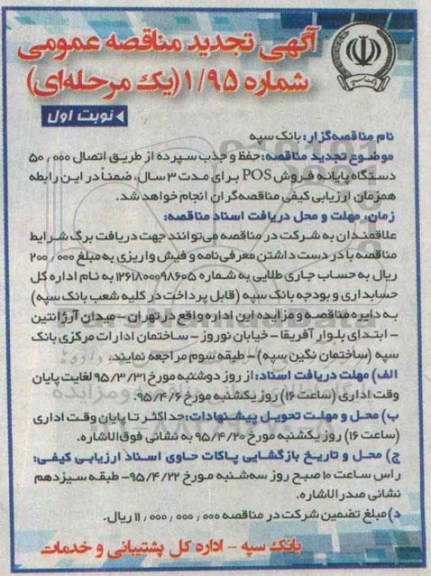 آگهی تجدید مناقصه عمومی
شماره ۱/۹۵ (یک مرحله‌ای)
نوبت اول
نام مناقصه‌گزار: بانک سپه
موضوع تجدید مناقصه: حفظ و جذب سپرده از طریق اتصال ۵۰٫۰۰۰
دستگاه پایانه فروش POS برای مدت ۳ سال، ضمناً در این رابطه
همزمان ارزیابی کیفی مناقصه‌گران انجام خواهد شد.
زمان، مهلت و محل دریافت اسناد مناقصه:
علاقمندان به شرکت در مناقصه می‌توانند جهت دریافت برگ شرایط
مناقصه با در دست داشتن معرفی‌نامه و فیش واریزی به مبلغ ۲۰۰٫۰۰۰
ریال به حساب جاری طلایی به شماره ۱۲۶۱۸۰۰۰۹۸۶۰۵ به نام اداره کل
حسابداری و بودجه بانک سپه (قابل پرداخت در کلیه شعب بانک سپه)
به دایره مناقصه و مزایده این اداره واقع در تهران - میدان آرژانتین
- ابتدای بلوار آفریقا - خیابان نوروز - ساختمان ادارات مرکزی بانک
سپه (ساختمان نگین سپه) - طبقه سوم مراجعه نمایند.
الف) مهلت دریافت اسناد: از روز دوشنبه مورخ ۹۵/۳/۳۱ لغایت پایان
وقت اداری (ساعت ۱۶) روز یکشنبه مورخ ۹۵/۴/۶.
ب) محل و مهلت تحویل پیشنهادات: حداکثر تا پایان وقت اداری
(ساعت ۱۶) روز یکشنبه مورخ ۹۵/۴/۲۰ به نشانی فوق‌الاشاره.
ج) محل و تاریخ بازگشایی پاکات حاوی اسناد ارزیابی کیفی:
راس ساعت ۱۰ صبح روز سه‌شنبه مورخ ۹۵/۴/۲۲- طبقه سیزدهم
نشانی صدرالاشاره.
د) مبلغ تضمین شرکت در مناقصه ۱۱٫۰۰۰٫۰۰۰٫۰۰۰ ریال.
بانک سپه - اداره کل پشتیبانی و خدمات